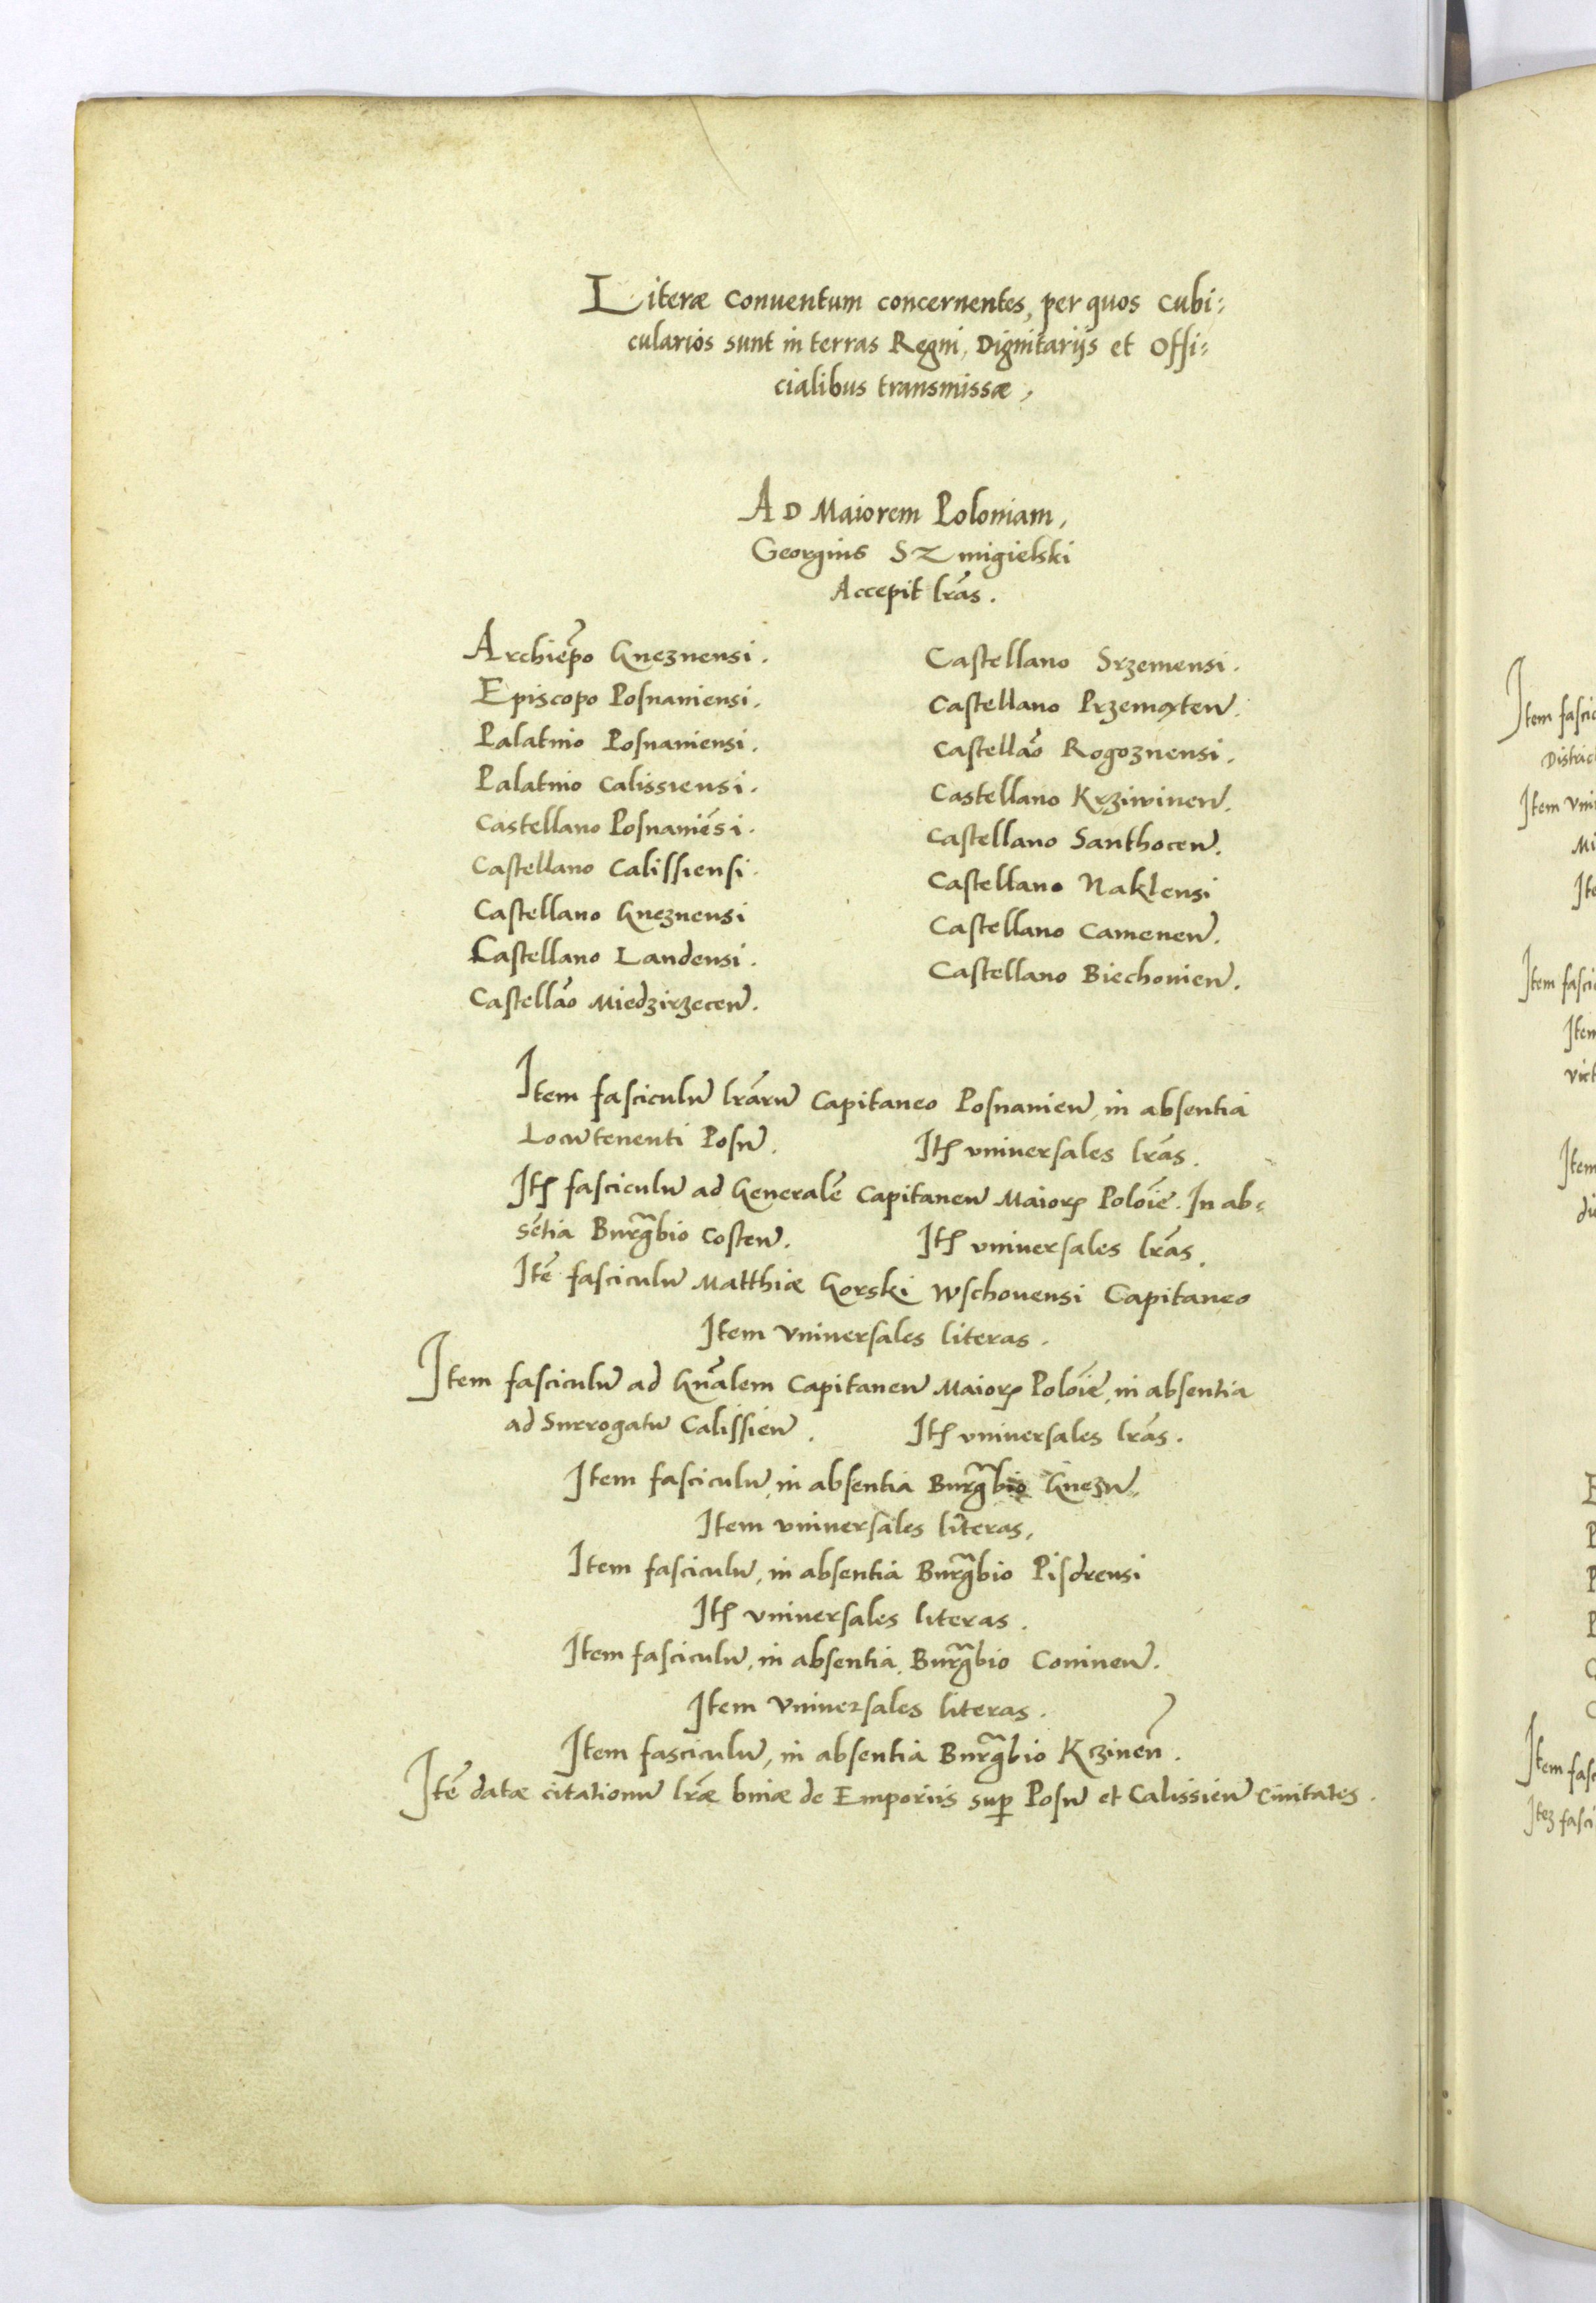 Literæ conuentum concernentes, per quos cubi:
cularios sunt in terras Regni, Dignitarijs et Offi:
cialibus transmissæ,
AD Maiorem Poloniam,
Georgius Szmigielski
Accepit lr̃as.
Archiep̃o Gneznensi.
Episcopo Posnaniensi.
Palatino Posnaniensi.
Palatino Calissiensi.
Castellano Posnaniẽsi.
Castellano Calissiensi.
Castellano Gneznensi
Castellano Landensi.
Castellão Miedzirzeceñ.
Castellano Srzemensi.
Castellano Przemżteñ.
Castellão Rogoznensi.
Castellano Krziwineñ.
Castellano Santhoceñ.
Castellano Naklensi
Castellano Cameneñ.
Castellano Biechouieñ.
Item fasciculũ lr̃arũ Capitaneo Posnanieñ, in absentia
Locũtenenti Posñ. Itꝫ vniuersales lr̃as.
Itꝫ fasciculũ ad Generalẽ Capitaneũ Maioꝝ Polõie. In ab:
sẽtia Burg̃bio Costeñ. Itꝫ vniuersales lr̃as.
Itẽ fasciculũ Matthiæ Gorski Wschouensi Capitaneo
Item vniuersales literas.
Item fasciculũ ad Gñalem Capitaneũ Maioꝝ Polõie, in absentia
ad Surrogatũ Calissieñ. Itꝫ vniuersales lr̃as.
Item fasciculũ, in absentia Burg̃bio Gnezñ.
Item vniuersales literas.
Item fasciculũ, in absentia Burg̃bio Pisdrensi
Itꝫ vniuersales literas.
Item fasciculũ, in absentia Burg̃bio Conineñ.
Item vniuersales literas.
Item fasciculũ, in absentia Burg̃bio Kczineñ.
Itẽ datæ citationũ lr̃æ binæ de Emporiis sup̱ Posñ et Calissieñ Ciuitates.
Item fasci
District
Item vni
Mi
Ite
Item fasci
Item
vict
Item
Item fasc
Itez fasci